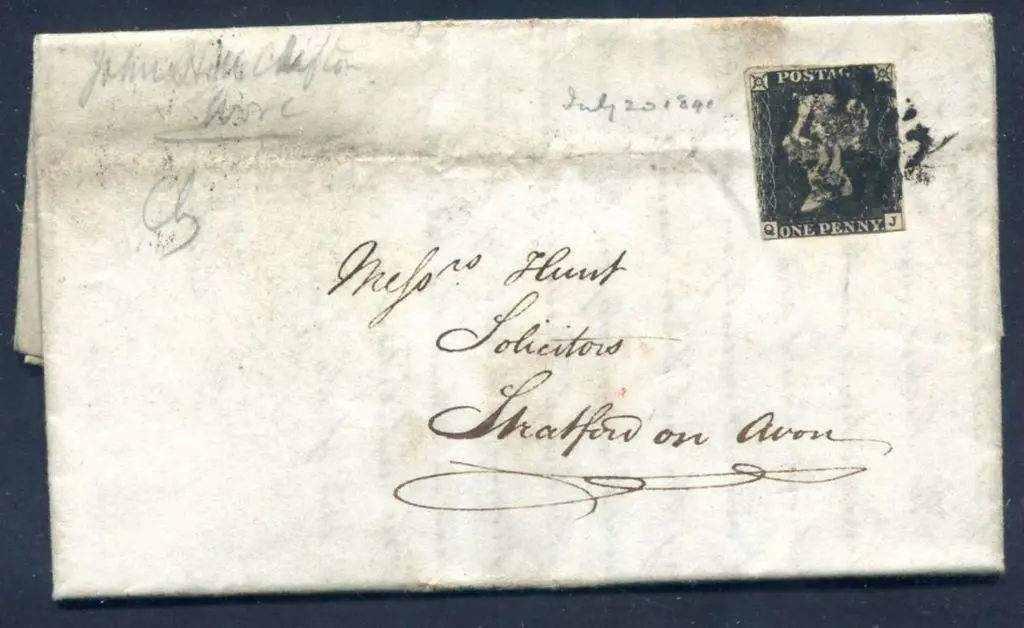 John Hill Clifton
July 20 1841
POSTAGE
Q ONE PENNY. J
Messrs Hunt
Solicitors
Stratford on Avon